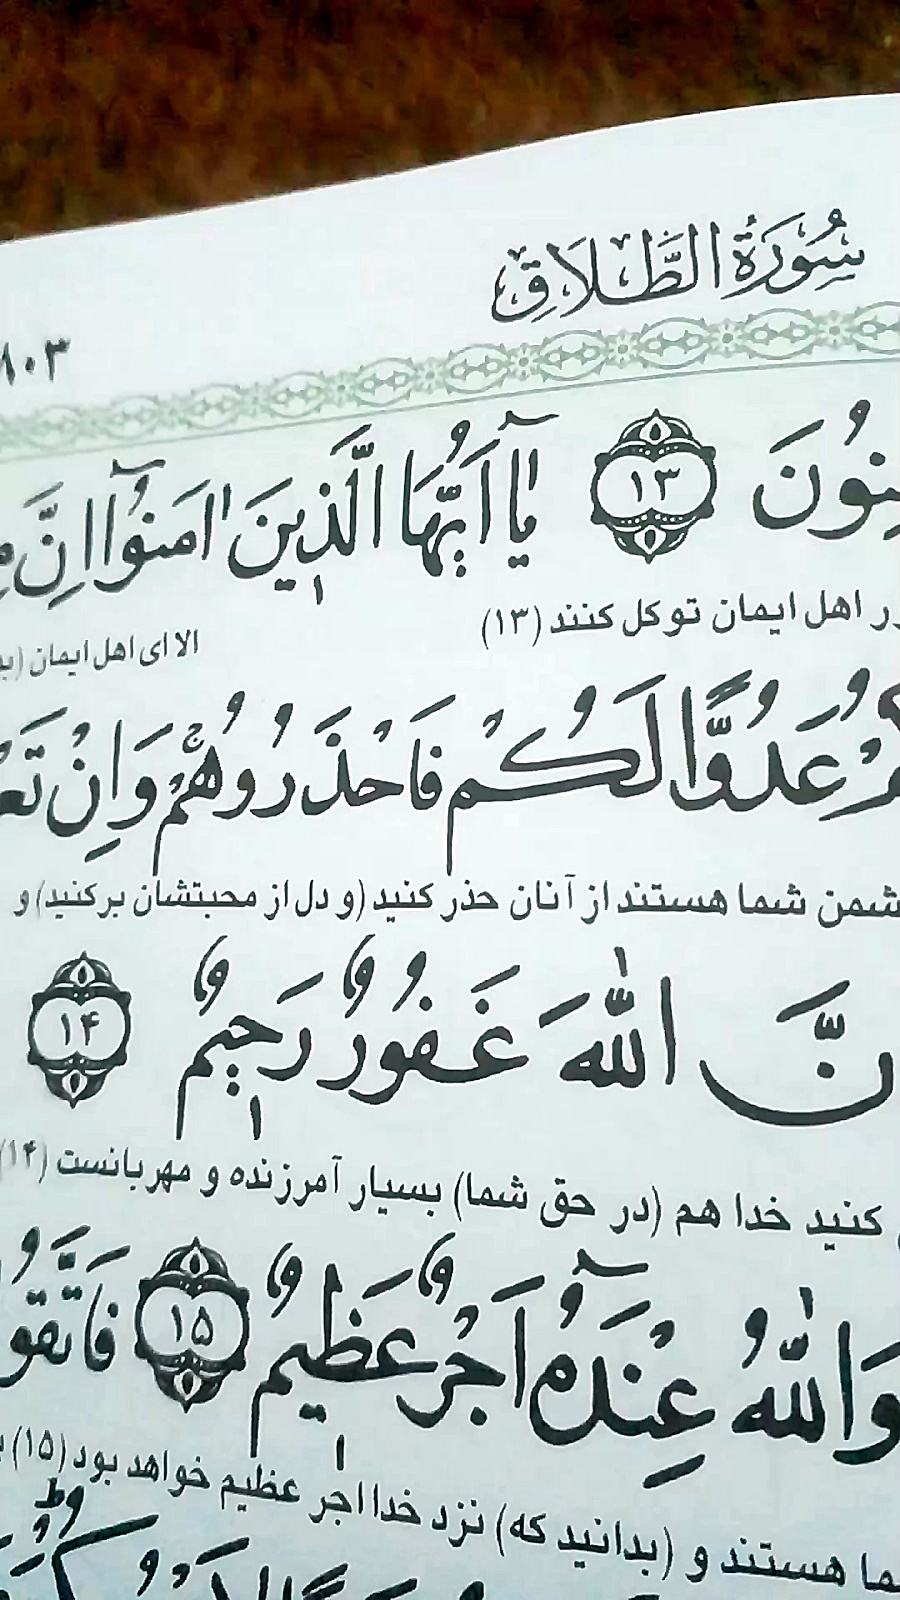 سُورَةُ الطَّلَاقِ
۸۰۳
۱۳ يٰٓا اَيُّهَا الَّذٖينَ اٰمَنُٓوا اِنَّ
ر اهل ایمان توکل کنند (۱۳)
الا ای اهل ایمان
عَدُوًّا لَكُمْ فَاحْذَرُوهُمْۚ وَاِنْ
شما هستند از آنان حذر کنید (و دل از محبتشان برکنید) و
اللّٰهَ غَفُورٌ رَحٖيمٌ ۱۴
کنید خدا هم (در حق شما) بسیار آمرزنده و مهربانست (۱۴)
وَاللّٰهُ عِنْدَهُٓ اَجْرٌ عَظٖيمٌ ۱۵
هستند و (بدانید که) نزد خدا اجر عظیم خواهد بود (۱۵)